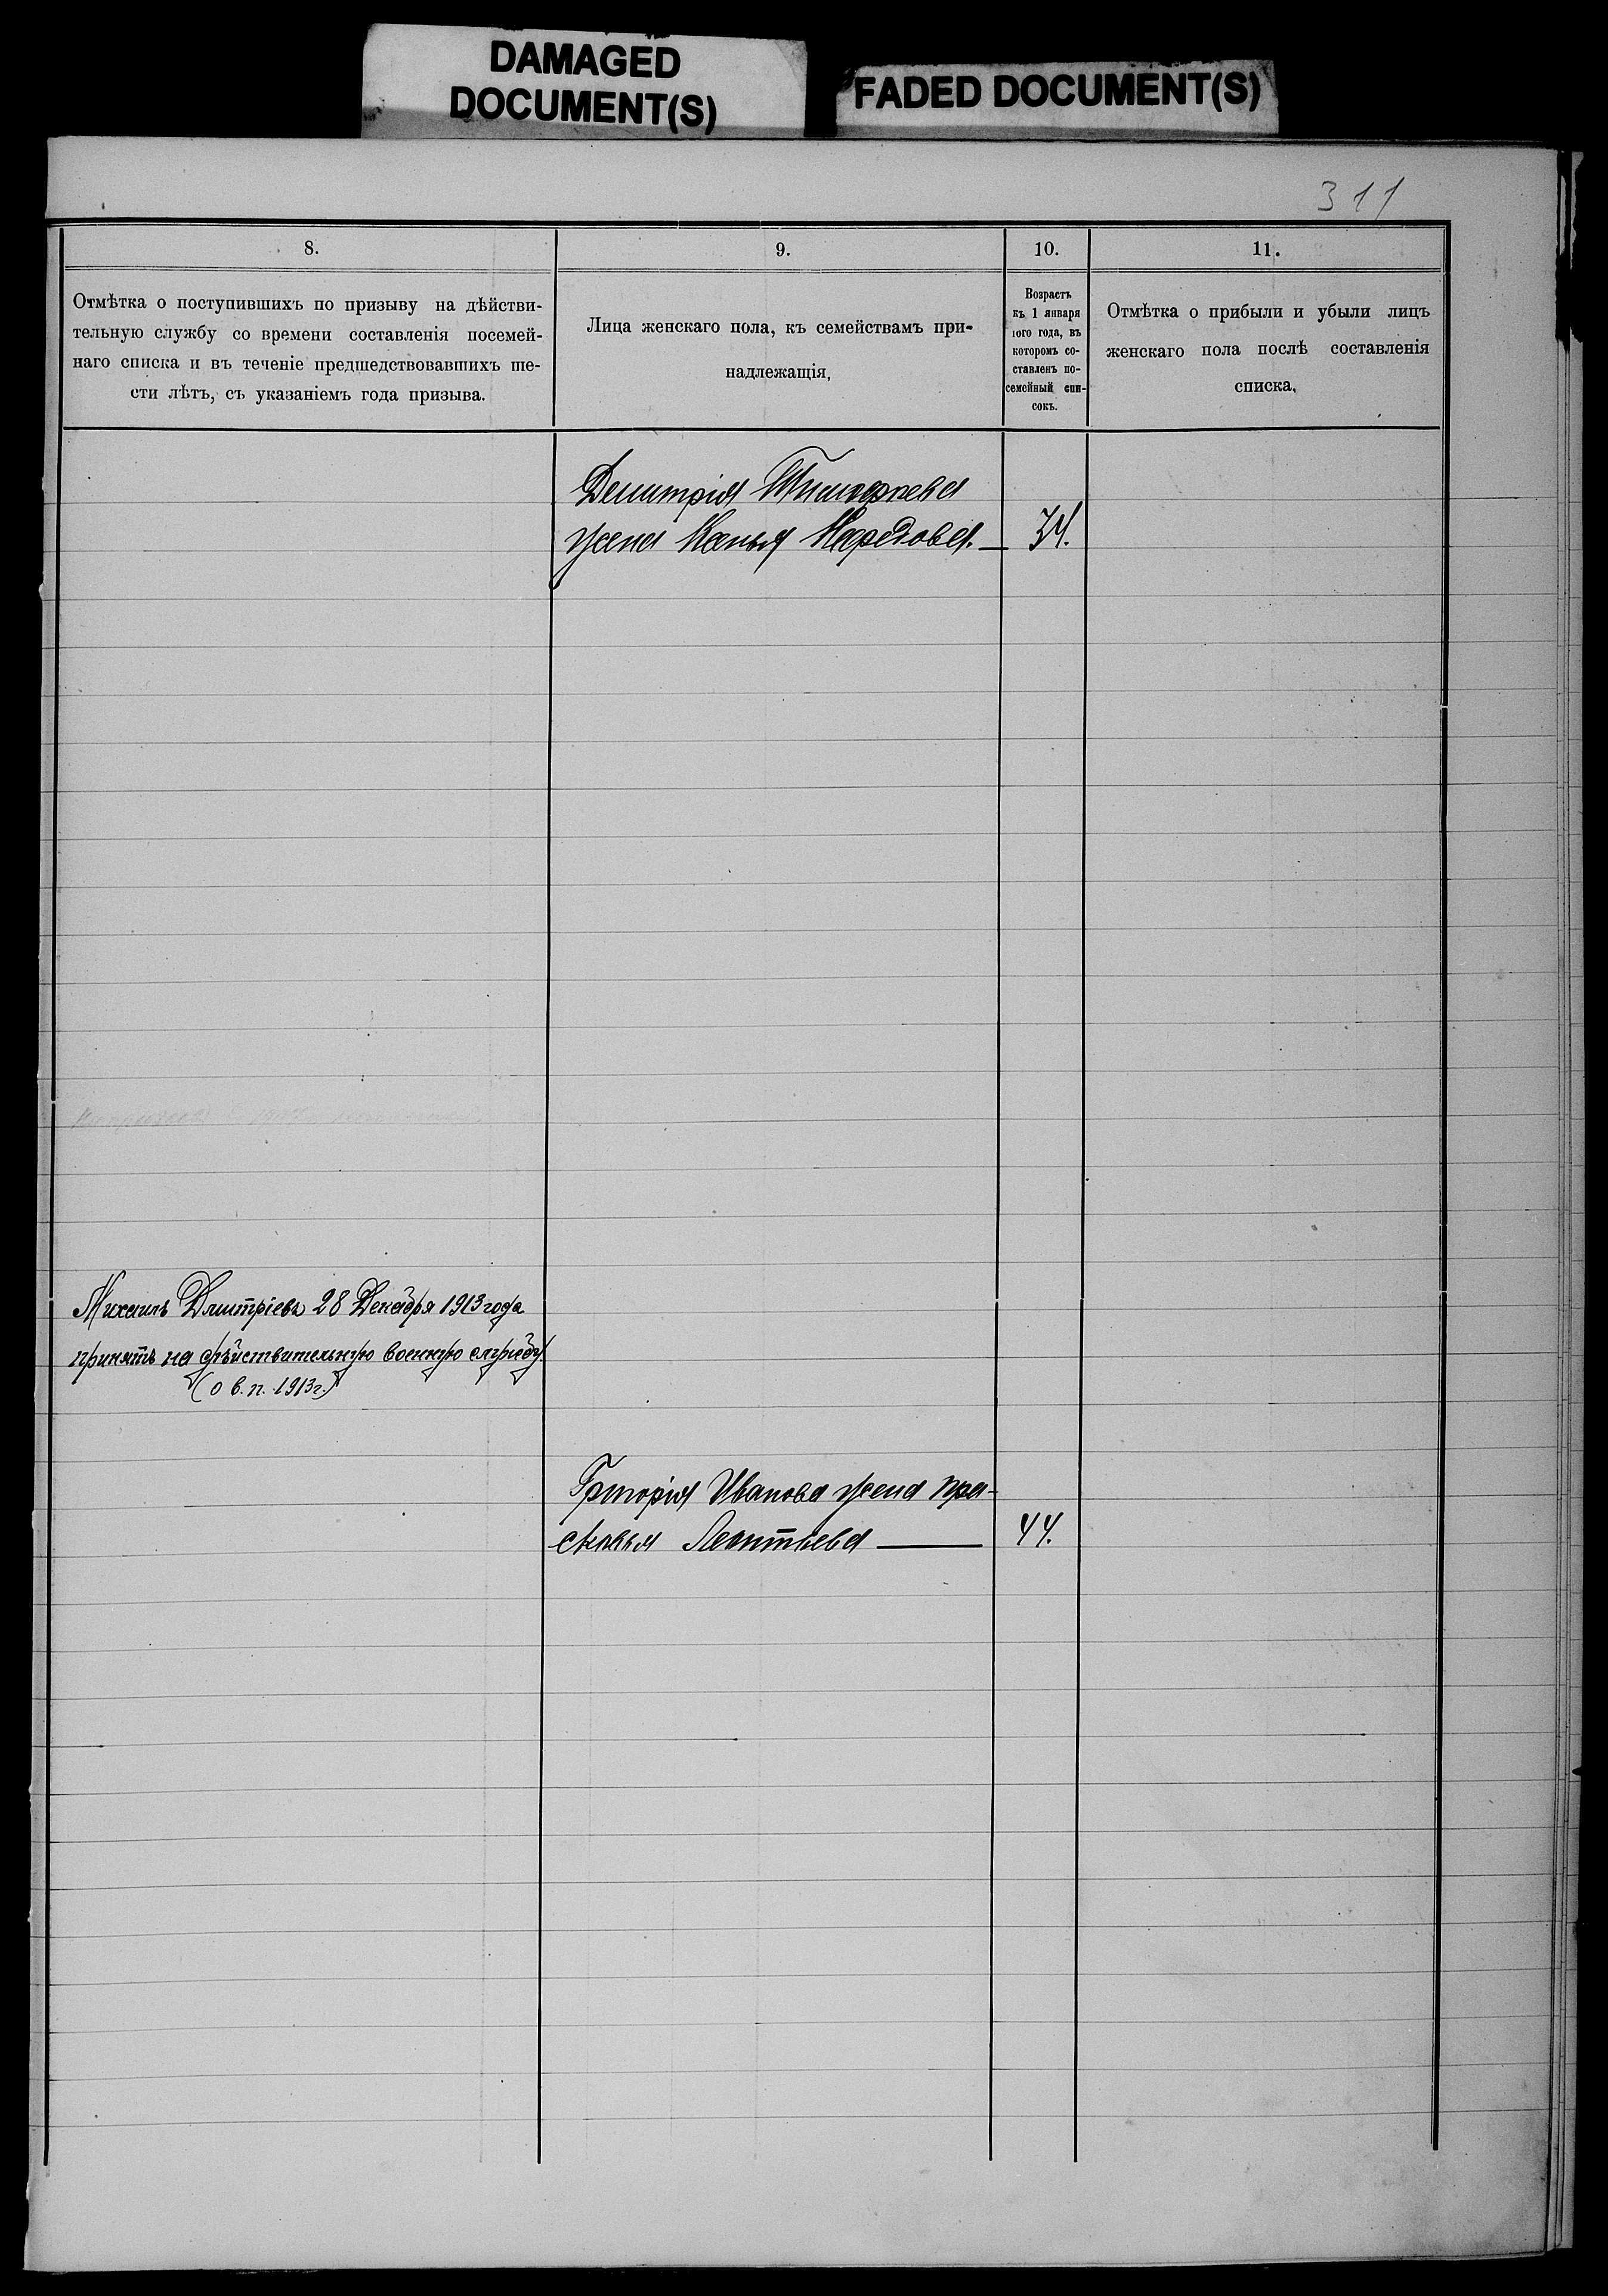 DAMAGED
DOCUMENT(S)
FADED DOCUMENT(S)
311
8.
Отмѣтка о поступившихъ по призыву на дѣйстви-
тельную службу со времени составленія посемей-
наго списка и въ теченіе предшедствовавшихъ ше-
сти лѣтъ, съ указаніемъ года призыва.
9.
Лица женскаго пола, къ семействамъ при-
надлежащія,
10.
Возрастъ
къ 1 января
того года, въ
которомъ со-
ставленъ по-
семейный спи-
сокъ.
11.
Отмѣтка о прибыли и убыли лицъ
женскаго пола послѣ составленія
списка.
Димитрія Тимофеева
жена 34.
Михаилъ Дмитріевъ 28 Декабря 1913 года
принятъ на дѣйствительную военную службу
(о в. п. 1913 г.)
Григорія Иванова жена Пра-
сковья Леонтьева 44.